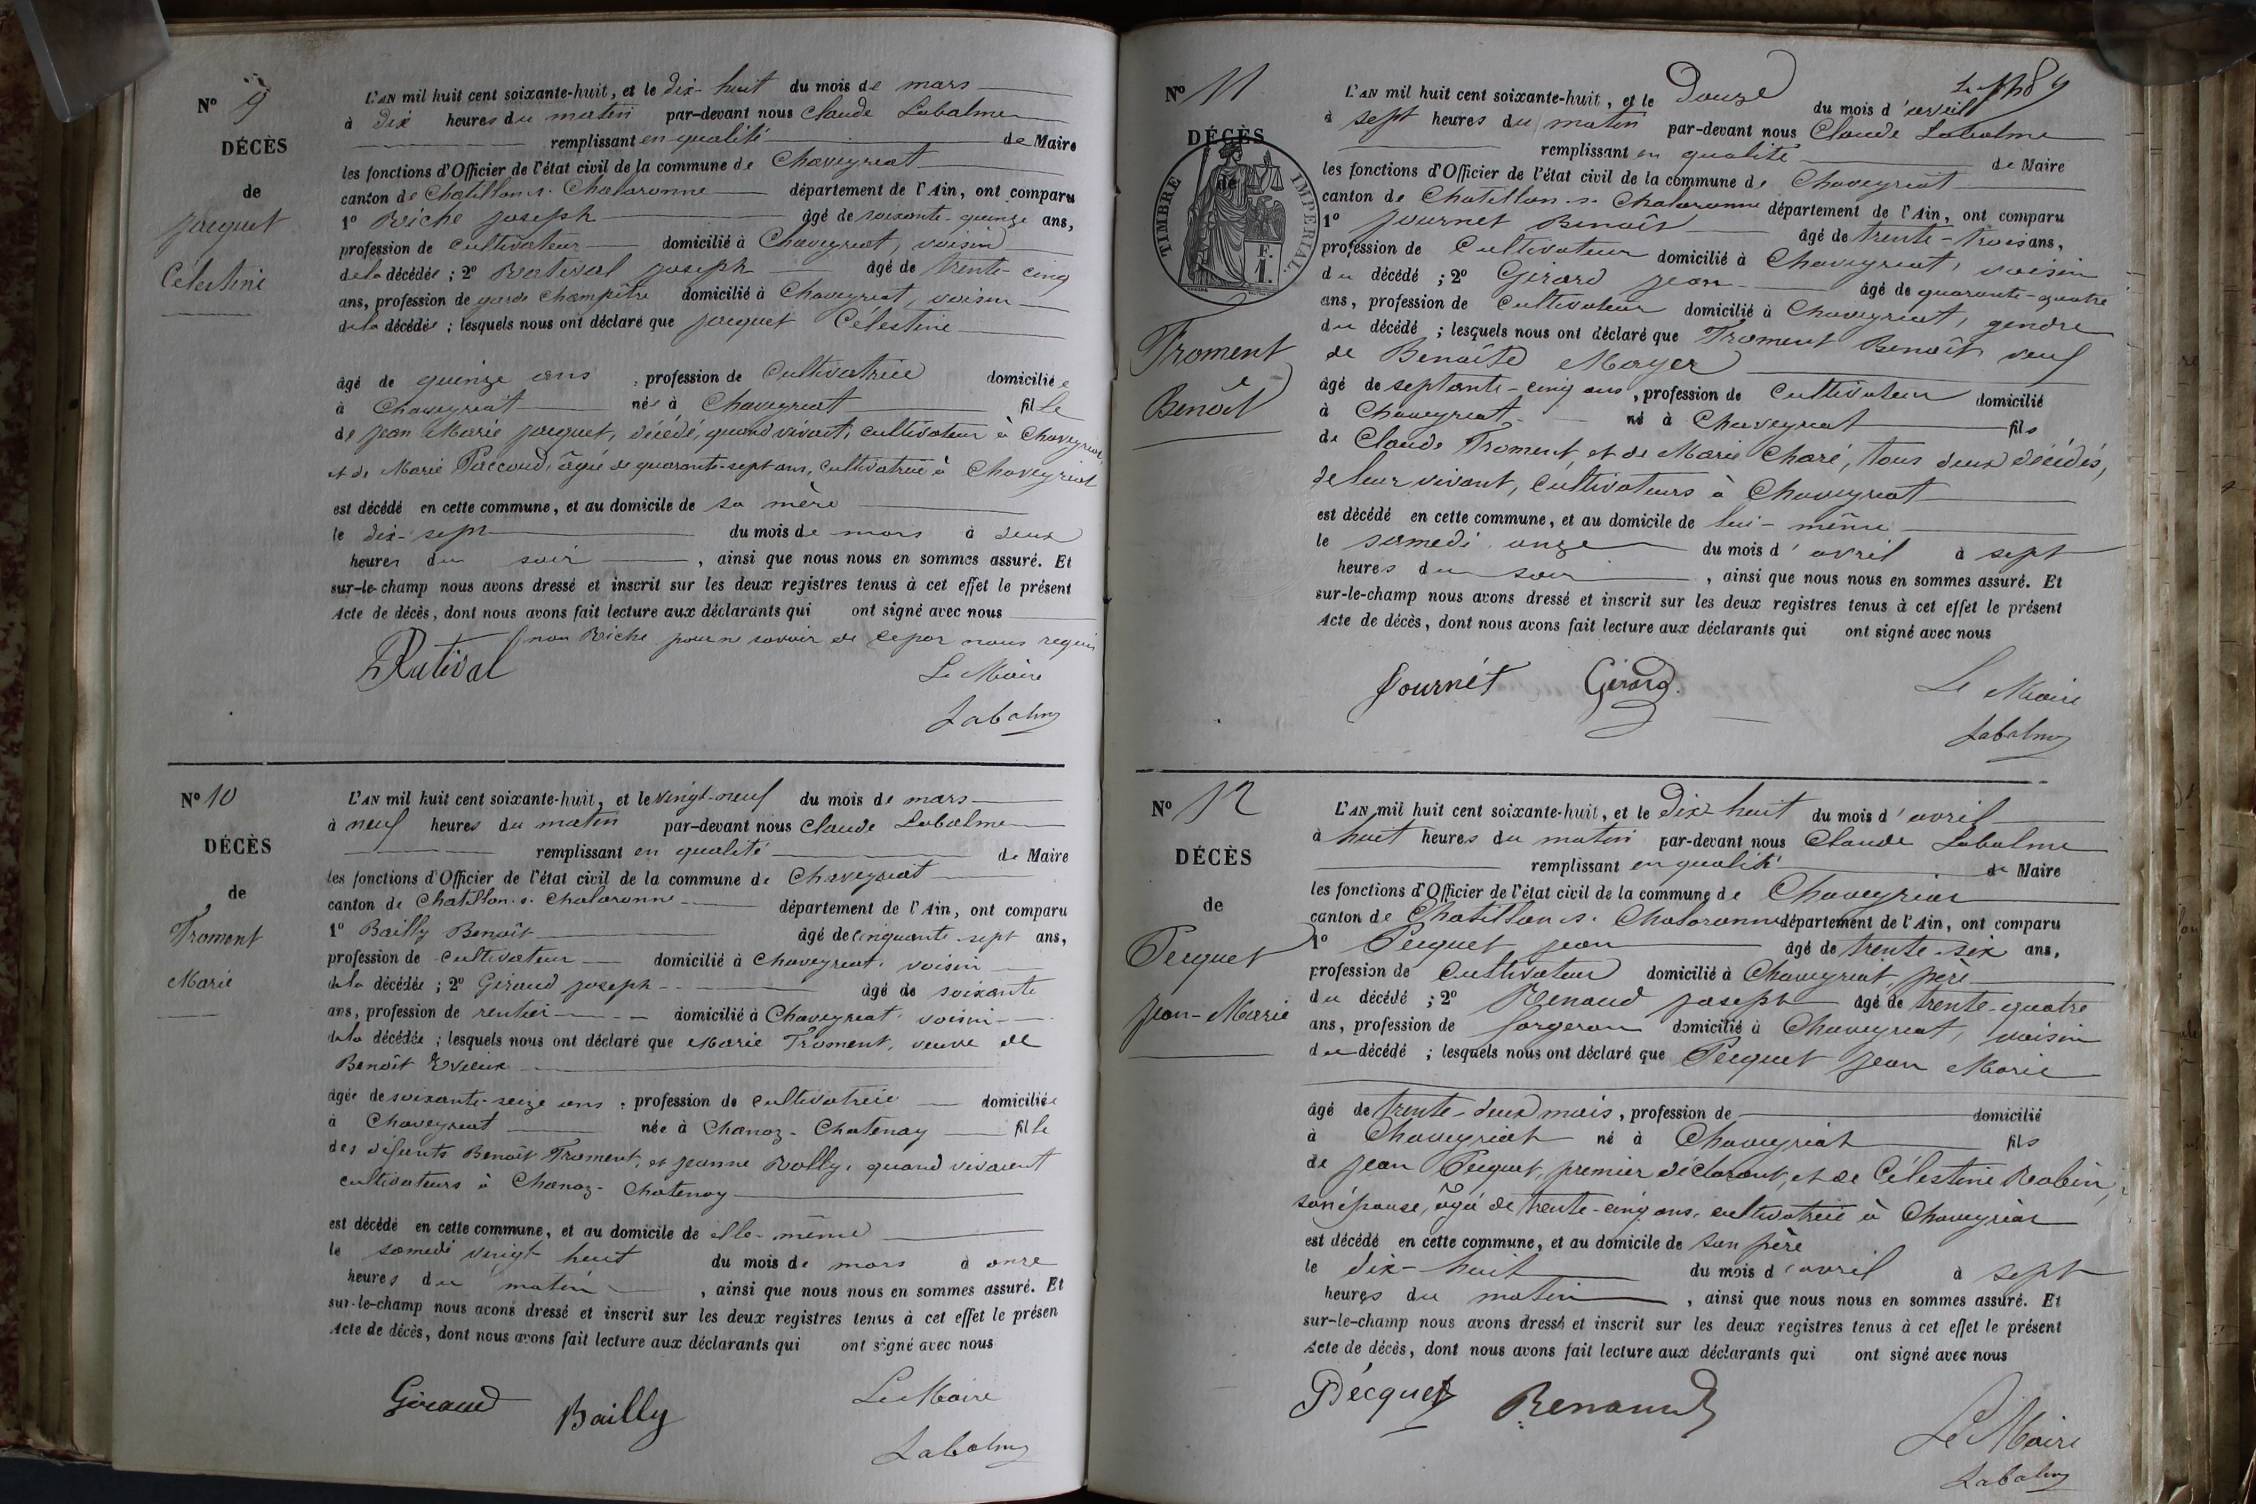 N° 9
DÉCÈS
de
Jacquet
Célestine
L'AN mil huit cent soixante-huit, et le dix-huit du mois de mars
à dix heures du matin par-devant nous Claude Labalme
remplissant en qualité de Maire
les fonctions d'Officier de l'état civil de la commune de Chaveyriat
canton de Chatillon s. Chalaronne département de l'Ain, ont comparu
1° Riche Joseph âgé de soixante-quinze ans,
profession de cultivateur domicilié à Chaveyriat, voisin
de la décédée ; 2° Rativat Joseph âgé de trente-cinq
ans, profession de garde champêtre domicilié à Chaveyriat, voisin
de la décédée ; lesquels nous ont déclaré que Jacquet Célestine
âgé de quinze ans, profession de Cultivatrice domiciliée
à Chaveyriat née à Chaveyriat fille
de Jean Marie Jacquet, décédé, quand vivait, cultivateur à Chaveyriat,
et de Marie Paccoud, âgée de quarante-sept ans, cultivatrice à Chaveyriat
est décédé en cette commune, et au domicile de sa mère
le dix-sept du mois de mars à deux
heures du soir, ainsi que nous nous en sommes assuré. Et
sur-le-champ nous avons dressé et inscrit sur les deux registres tenus à cet effet le présent
Acte de décès, dont nous avons fait lecture aux déclarants qui ont signé avec nous
non Riche pour ne savoir de ce par nous requis
Rativat
Le Maire
Labalme
N° 10
DÉCÈS
de
Froment
Marie
L'AN mil huit cent soixante-huit, et le vingt-neuf du mois de mars
à neuf heures du matin par-devant nous Claude Labalme
remplissant en qualité de Maire
les fonctions d'Officier de l'état civil de la commune de Chaveyriat
canton de Chatillon s. Chalaronne département de l'Ain, ont comparu
1° Bailly Benoît âgé de cinquante-sept ans,
profession de cultivateur domicilié à Chaveyriat, voisin
de la décédée ; 2° Giraud Joseph âgé de soixante
ans, profession de rentier domicilié à Chaveyriat, voisin
de la décédée ; lesquels nous ont déclaré que Marie Froment, veuve de
Benoît Evieux
âgée de soixante-seize ans, profession de cultivatrice domiciliée
à Chaveyriat née à Chanoz-Chatenay fille
des défunts Benoît Froment, et Jeanne Rolly, quand vivaient
cultivateurs à Chanoz-Chatenay
est décédé en cette commune, et au domicile de elle-même
le samedi vingt huit du mois de mars à onze
heures du matin, ainsi que nous nous en sommes assuré. Et
sur-le-champ nous avons dressé et inscrit sur les deux registres tenus à cet effet le présen
Acte de décès, dont nous avons fait lecture aux déclarants qui ont signé avec nous
Giraud Bailly
Le Maire
Labalme
N° 11
DÉCÈS
de
TIMBRE IMPERIAL.
F.
1.
Froment
Benoît
L'AN mil huit cent soixante-huit, et le Douze du mois d'avril
à sept heures du matin par-devant nous Claude Labalme
remplissant en qualité de Maire
les fonctions d'Officier de l'état civil de la commune de Chaveyriat
canton de Chatillon s. Chalaronne département de l'Ain, ont comparu
1° Journet Benoît âgé de trente-trois ans,
profession de Cultivateur domicilié à Chaveyriat, voisin
du décédé ; 2° Girard Jean âgé de quarante-quatre
ans, profession de Cultivateur domicilié à Chaveyriat, gendre
du décédé ; lesquels nous ont déclaré que Froment Benoît veuf
de Benoîte Mayer
âgé de septante-cinq ans, profession de Cultivateur domicilié
à Chaveyriat né à Chaveyriat fils
de Claude Froment, et de Marie Charé, tous deux décédés,
de leur vivant, cultivateurs à Chaveyriat
est décédé en cette commune, et au domicile de lui-même
le samedi onze du mois d'avril à sept
heures du soir, ainsi que nous nous en sommes assuré. Et
sur-le-champ nous avons dressé et inscrit sur les deux registres tenus à cet effet le présent
Acte de décès, dont nous avons fait lecture aux déclarants qui ont signé avec nous
Journet Girard
Le Maire
Labalme
N° 12
DÉCÈS
de
Pecquet
Jean-Marie
L'AN mil huit cent soixante-huit, et le Dix huit du mois d'avril
à huit heures du matin par-devant nous Claude Labalme
remplissant en qualité de Maire
les fonctions d'Officier de l'état civil de la commune de Chaveyriat
canton de Chatillon s. Chalaronne département de l'Ain, ont comparu
1° Pecquet Jean âgé de trente-six ans,
profession de Cultivateur domicilié à Chaveyriat, père
du décédé ; 2° Renaud Joseph âgé de trente-quatre
ans, profession de forgeron domicilié à Chaveyriat, voisin
du décédé ; lesquels nous ont déclaré que Pecquet Jean Marie
âgé de trente-deux mois, profession de domicilié
à Chaveyriat né à Chaveyriat fils
de Jean Pecquet, premier déclarant, et de Célestine Roabin,
son épouse, âgée de trente-cinq ans, cultivatrice à Chaveyriat
est décédé en cette commune, et au domicile de son père
le dix-huit du mois d'avril à sept
heures du matin, ainsi que nous nous en sommes assuré. Et
sur-le-champ nous avons dressé et inscrit sur les deux registres tenus à cet effet le présent
Acte de décès, dont nous avons fait lecture aux déclarants qui ont signé avec nous
Pécquet Renaud
Le Maire
Labalme